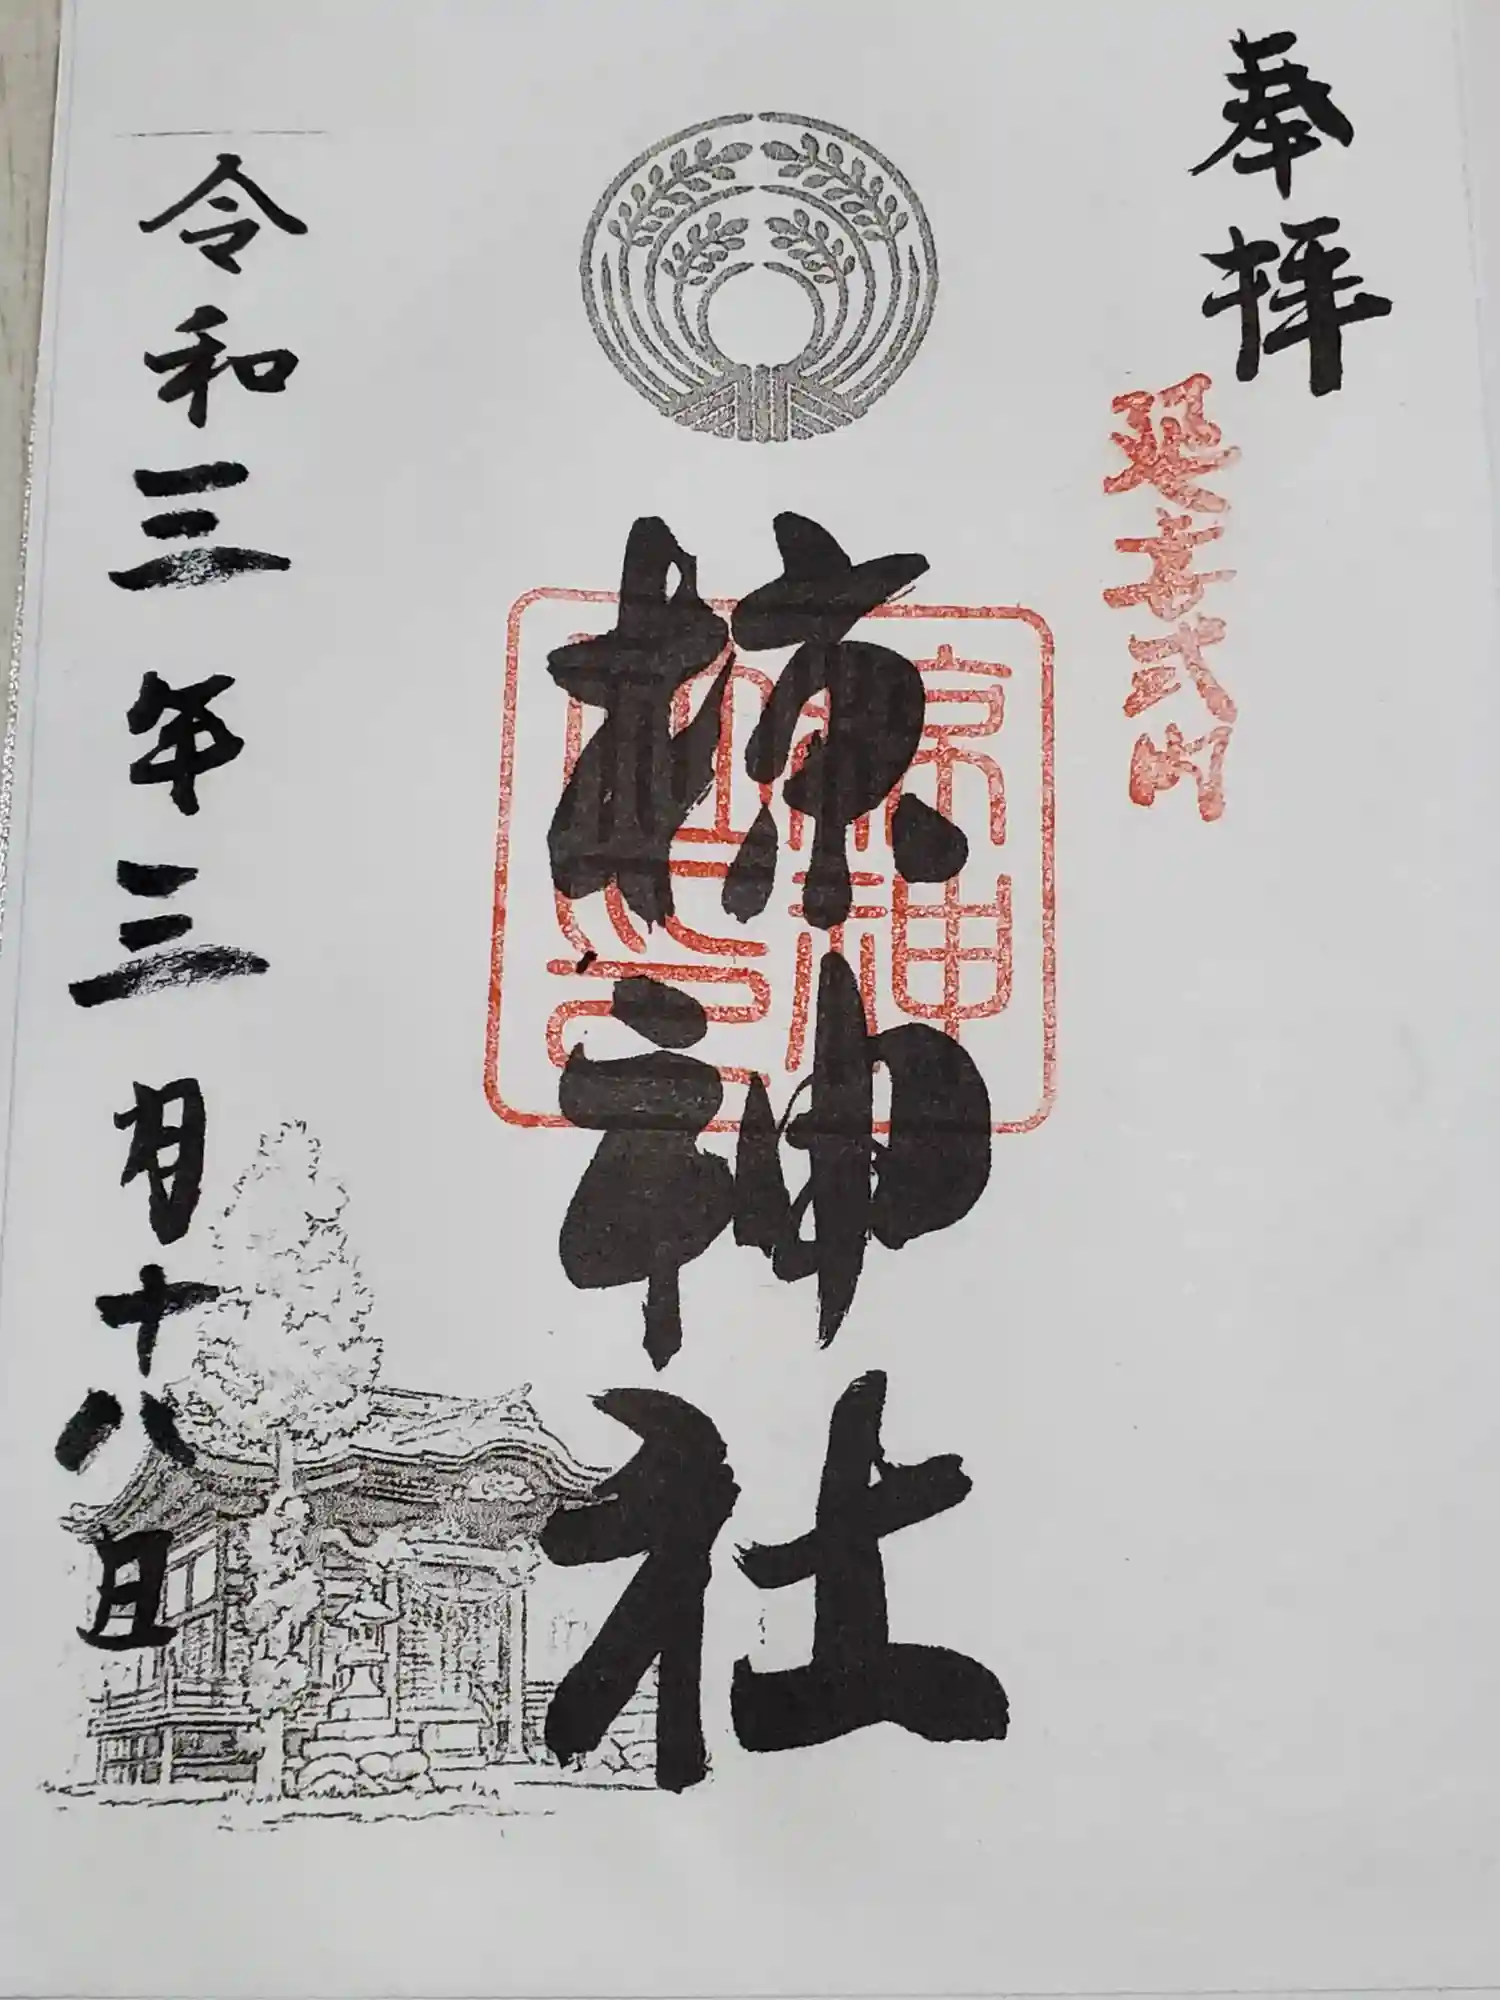 奉拝
延喜式内
椋神社
椋神
社之印
令和三年三月十八日